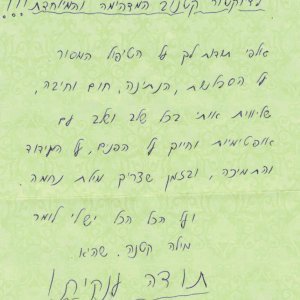 לדוקטור קטנוב המדהימה והמיוחדת!!!
אלפי תודות לך על הטיפול המסור
על הסבלנות, הנתינה, חום וחיבה,
שליווית אותי בכל שלב ושלב עם
אופטימיות וחיוך על הפנים, על העידוד
והתמיכה, ובזמן שצריך מילת נחמה
ועל הכל הכל יש לי לומר
מילה קטנה, שהיא
תודה ענקית!